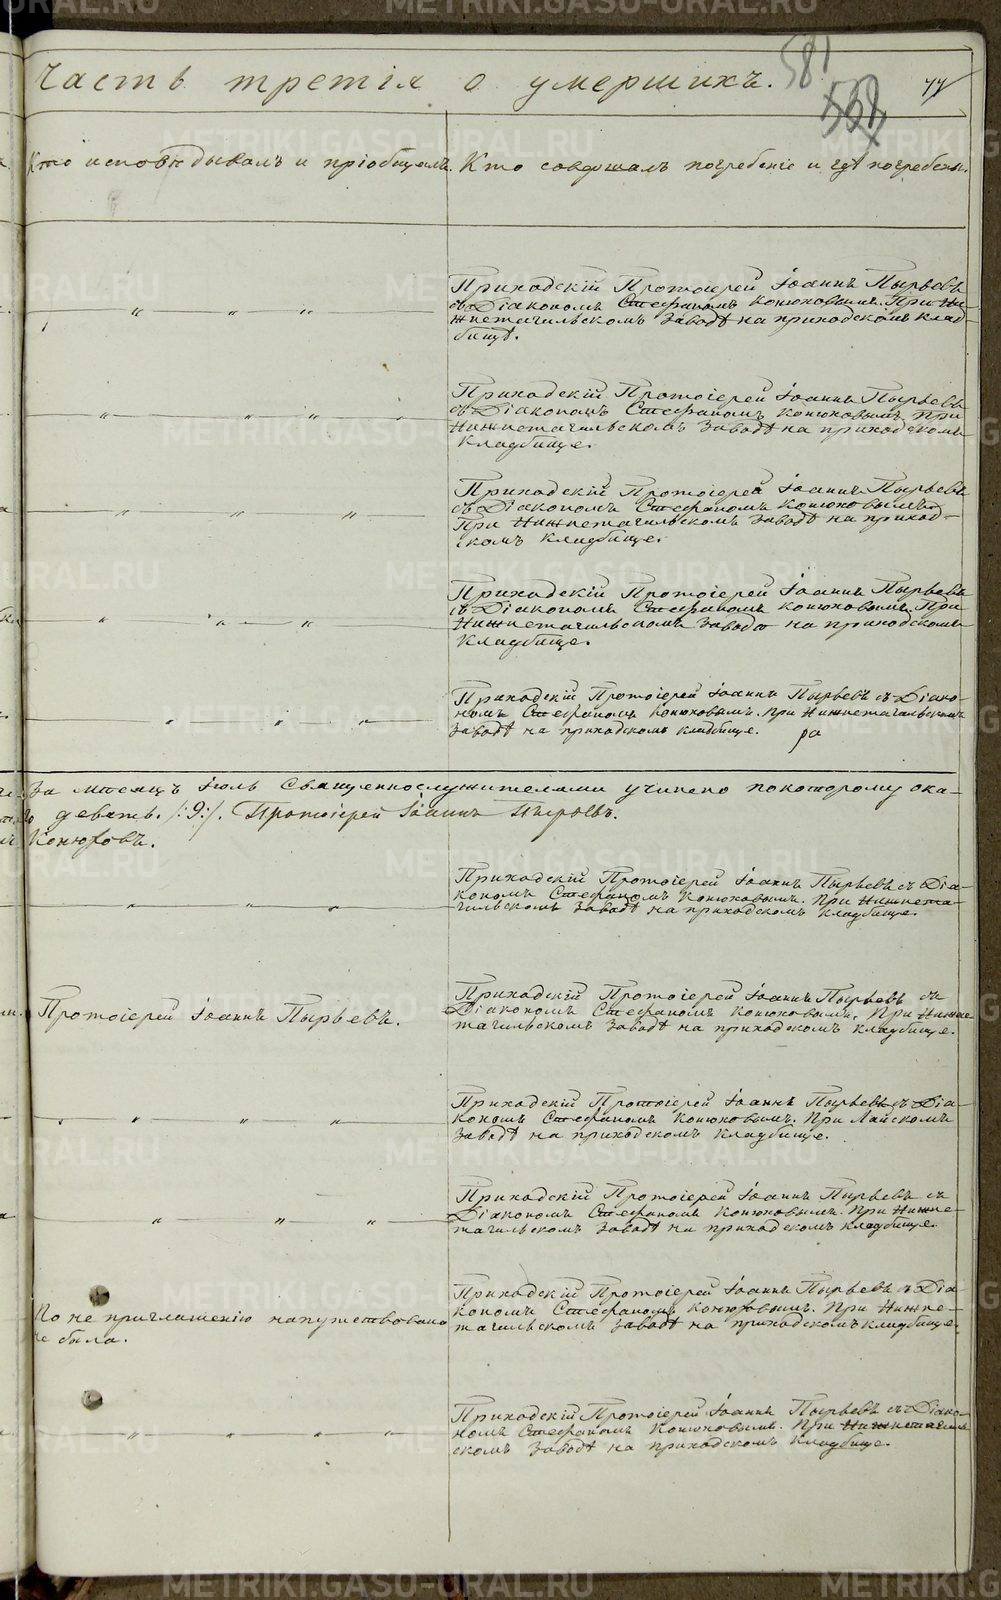 Часть третія о умершихъ.
581
77
Кто исповѣдывалъ и пріобщалъ.
Кто совершалъ погребеніе и гдѣ погребены.
Приходскій Протоіерей Іоаннъ Пырьевъ
съ Діакономъ Стефаномъ Конюховымъ. При Ни-
жнетагильскомъ Заводѣ на приходскомъ клад-
бищѣ.
Приходскій Протоіерей Іоаннъ Пырьевъ
съ Діакономъ Стефаномъ Конюховымъ при
Нижнетагильскомъ Заводѣ на приходскомъ
кладбище.
Приходскій Протоіерей Іоаннъ Пырьевъ
съ Діакономъ Стефаномъ Конюховымъ
При Нижнетагильскомъ Заводѣ на приход-
скомъ кладбище.
Приходскій Протоіерей Іоаннъ Пырьевъ
съ Діакономъ Стефаномъ Конюховымъ. При
Нижнетагильскомъ Заводѣ на приходскомъ
кладбище.
Приходскій Протоіерей Іоаннъ Пырьевъ съ Діако-
номъ Стефаномъ Конюховымъ. При Нижнетагильскомъ
Заводѣ на приходскомъ кладбище.
За мѣсяцъ Іюль Священнослужителями учинено покоторому ока-
девять. /:9:/. Протоіерей Іоаннъ Пырьевъ.
Конюховъ.
Приходскій Протоіерей Іоаннъ Пырьевъ съ Діа-
кономъ Стефаномъ Конюховымъ. При Нижнета-
гильскомъ Заводѣ на приходскомъ кладбище.
Протоіерей Іоаннъ Пырьевъ.
Приходскій Протоіерей Іоаннъ Пырьевъ съ
Діакономъ Стефаномъ Конюховымъ. При Нижне
тагильскомъ Заводѣ на приходскомъ кладбище.
Приходскій Протоіерей Іоаннъ Пырьевъ съ Діа-
кономъ Стефаномъ Конюховымъ. При Лайскомъ
Заводѣ на приходскомъ кладбище.
Приходскій Протоіерей Іоаннъ Пырьевъ съ
Діакономъ Стефаномъ Конюховымъ. При Нижне-
тагильскомъ Заводѣ на приходскомъ кладбище.
По не приглашенію напутствована
не была.
Приходскій Протоіерей Іоаннъ Пырьевъ съ Діа
кономъ Стефаномъ Конюховымъ. При Нижне-
тагильскомъ Заводѣ на приходскомъ кладбище.
Приходскій Протоіерей Іоаннъ Пырьевъ съ Діако-
номъ Стефаномъ Конюховымъ. При Нижнетагиль
скомъ Заводѣ на приходскомъ кладбище.
METRIKI.GASO-URAL.RU